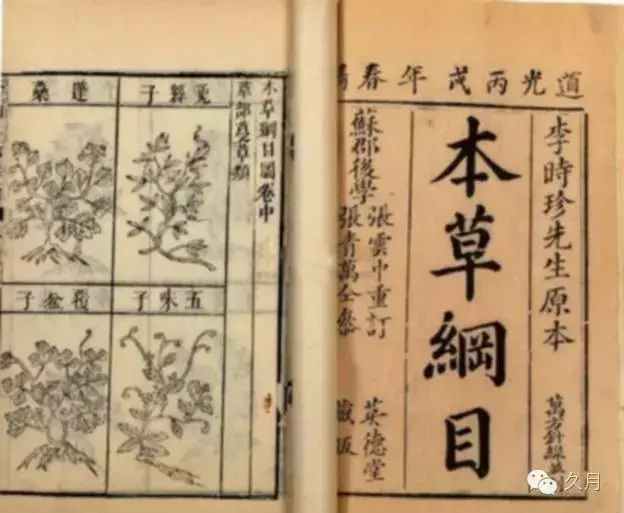 道光丙戌年春
李時珍先生原本
本草綱目
蘇郡後學
張雲中重訂
張青萬仝參
英德堂
藏版
本草綱目圖卷中
草部蔓草類
兎絲子
蓬
五味子
覆盆子
久月